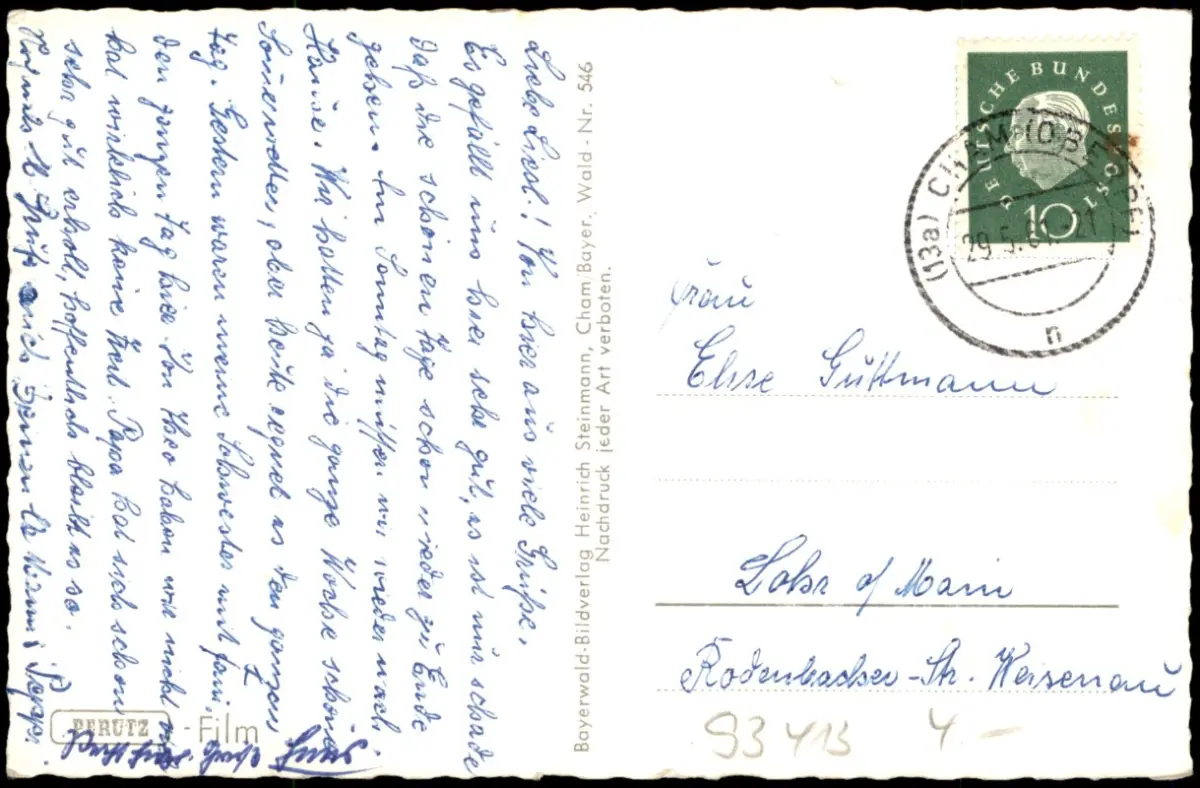 Liebe Liesl! Von hier aus viele Grüße.
Es gefällt uns hier sehr gut, es ist nur schade
daß die schönen Tage schon wieder zu Ende
gehen. Am Sonntag müssen wir wieder nach
Hause. Wir hatten ja die ganze Woche schönes
Sommerwetter, aber heute regnet es den ganzen
Tag. Gestern waren meine Schwester mit fam.
den ganzen Tag hier. Von Theo haben wir nichts
hat wirklich keine Zeit. Papa hat sich schon
sehr gut erholt, hoffentlich bleibt es so.
Nochmals Grüße auch Deinen Mami Pappi
PERUTZ - Film
Bayerwald-Bildverlag Heinrich Steinmann, Cham Bayer. Wald - Nr. 546
Nachdruck jeder Art verboten.
DEUTSCHE BUNDESPOST
10
(13a) CHAM (OBERPF)
29.5.61.-21
n
Frau
Elise Guttmann
Lohr a/Main
Rodenbacher-Str. Weisenau
93413 4.-